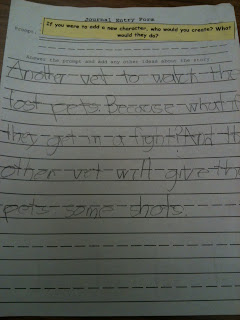 Journal Entry Form
Prompt:
If you were to add a new character, who would you create? What
would they do?
Answer the prompt and add any other ideas about the story
Another vet to watch the
lost pets. Because what if
they get in a fight? And the
other vet will give the
pets some shots.